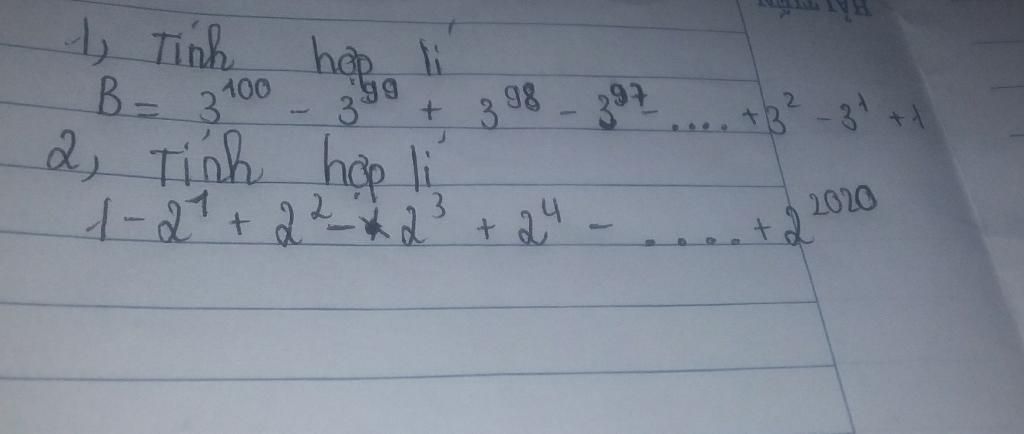 1, Tính hợp lí
B = 3^100 - 3^99 + 3^98 - 3^97 - .... + 3^2 - 3^1 + 1
2, Tính hợp lí
1 - 2^1 + 2^2 - 2^3 + 2^4 - ..... + 2^2020